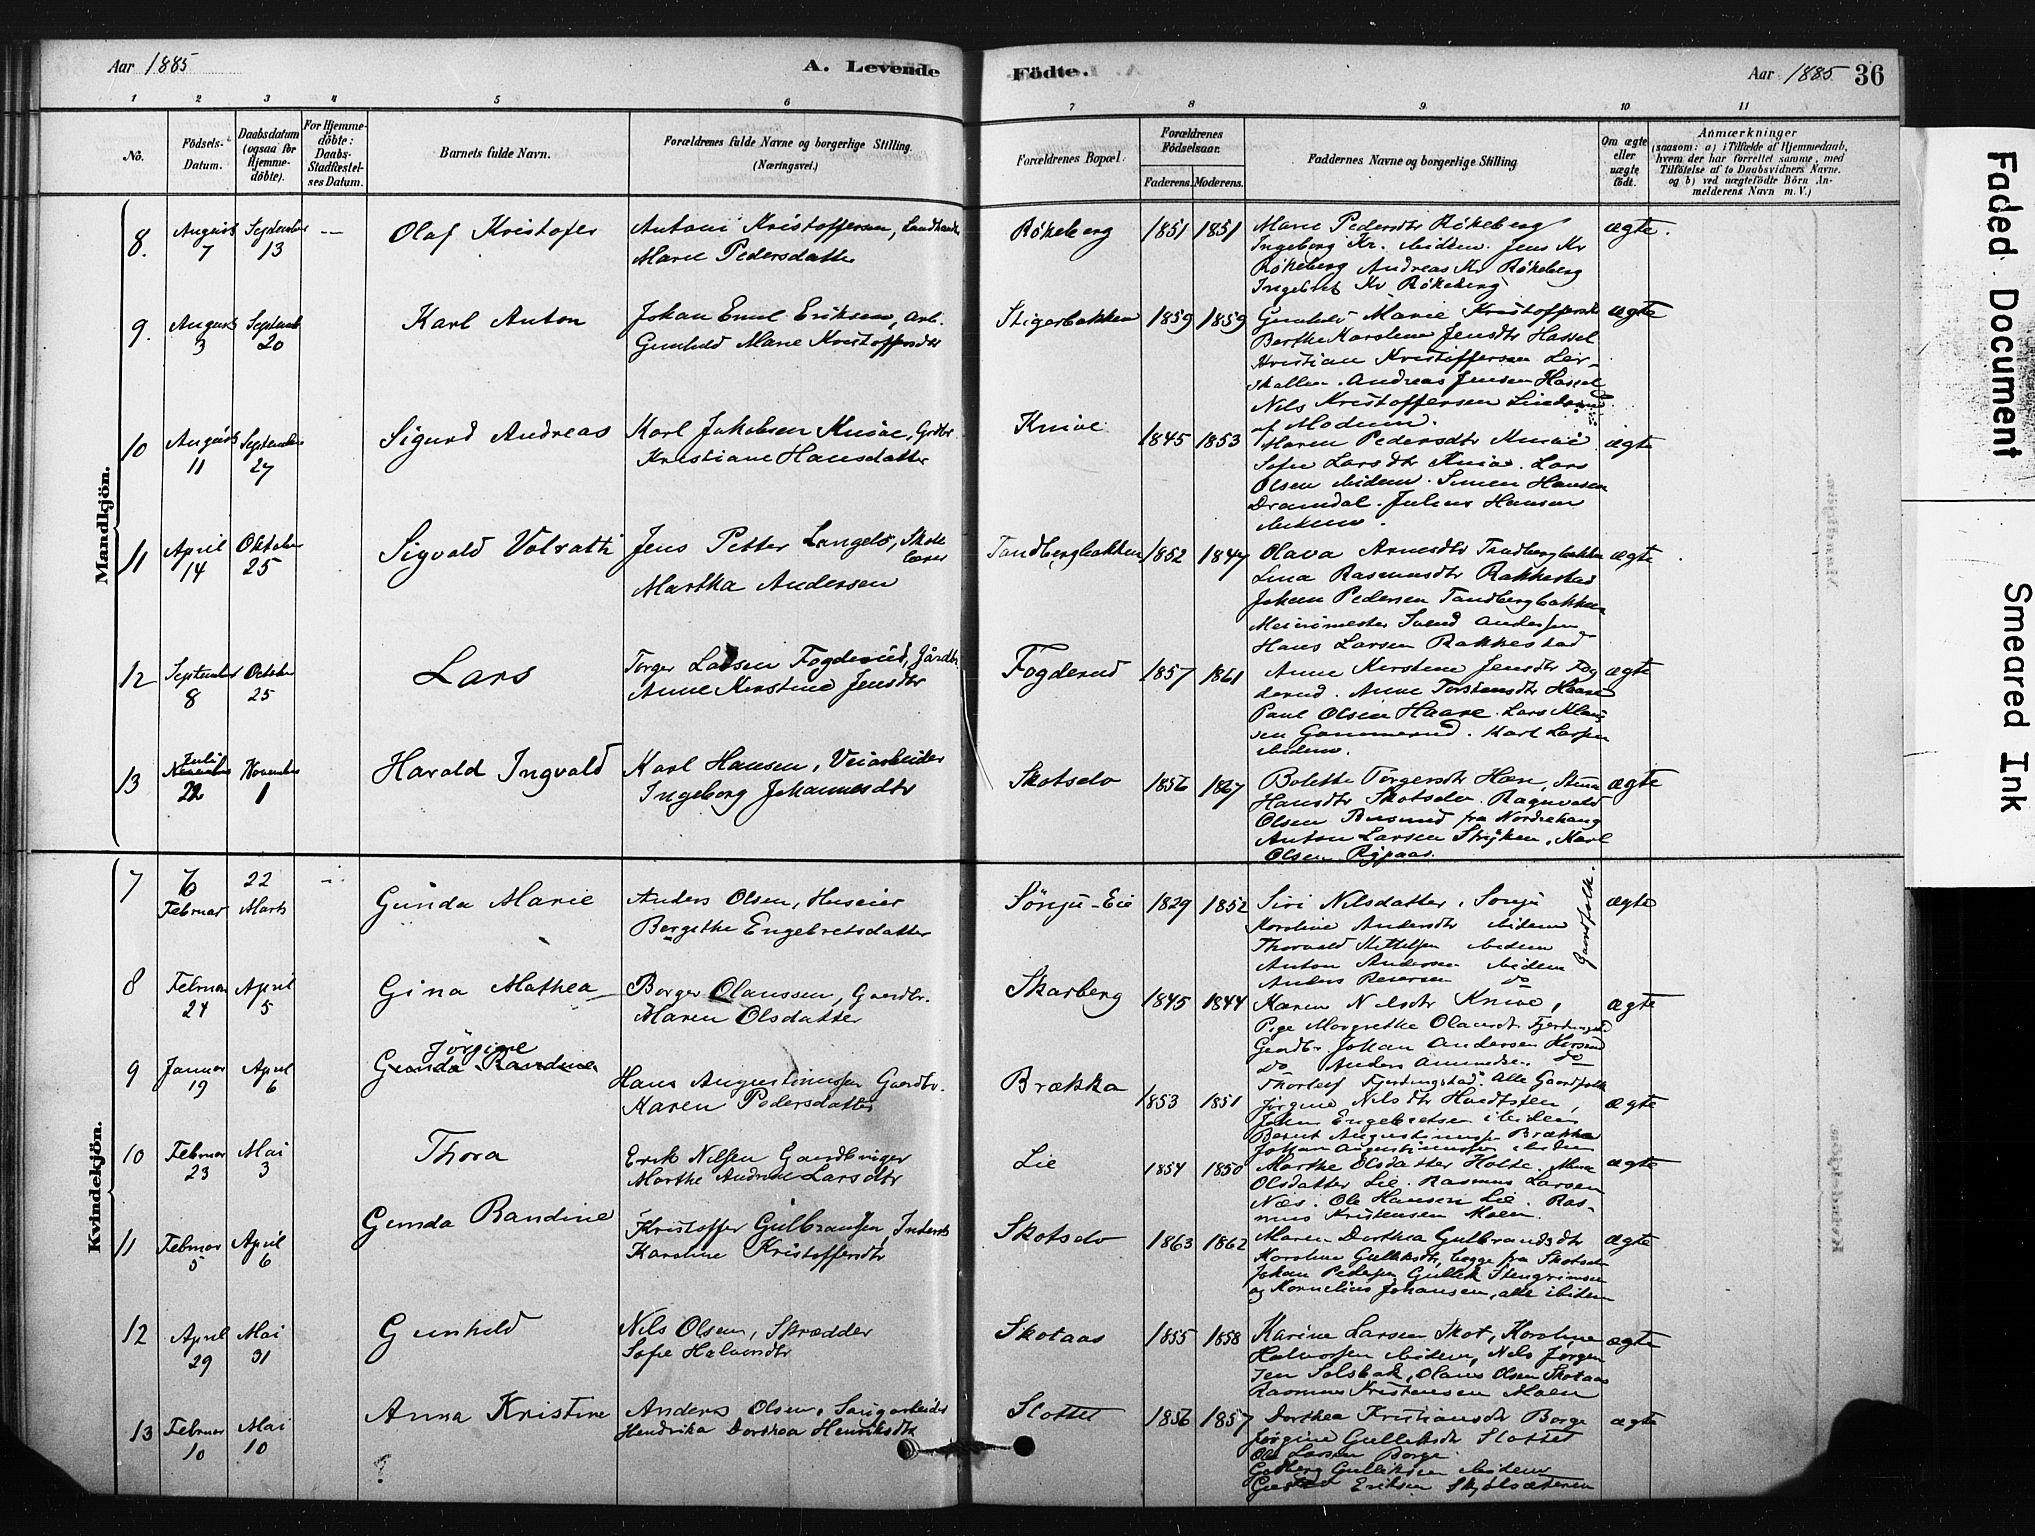 Aar 1885
A. Levende
Födte.
Aar 1885
36
1 2 3 4 5 6 7 8 9 10 11
No.
Födsels-Datum.
Daabsdatum (ogsaa for Hjemme-döbte).
For Hjemme-döbte: Daabs-Stadfæstel-ses Datum.
Barnets fulde Navn.
Forældrenes fulde Navne og borgerlige Stilling. (Næringsvei.)
Forældrenes Bopæl.
Forældrenes Födselsaar.
Faderens. Moderens.
Faddernes Navne og borgerlige Stilling.
Om ægte eller uægte födt.
Anmærkninger
(saasom: a) i Tilfælde af Hjemmedaab,
hvem der har forrettet samme, med
Tilföielse af to Daabsvidners Navne.
og b) ved uægtefödte Börn An-
melderens Navn m. V.)
Mandkjön.
8. August 7 September 13 — Olaf Kristofer
Antoni Kristoffersen,
Marie Pedersdatter
Rökeberg 1851 1851
Marie Pedersdtr Rökeberg
Ingeborg Kr. ibidem. Jens Kr
Rökeberg Andreas Kr Rökeberg
Ingebret Kr Rökeberg
ægte.
9. August 3 Septemb 20 Karl Anton
Johan Emil Eriksen, Arb.
Gunhild Marie Kristoffersdtr
Stigerbakken 1859 1859
Gunhild Marie Kristoffersdtr
Berthe Karoline Jensdtr Hassel
Kristian Kristoffersen Leir-
skallen. Andreas Jensen Hassel
Nils Kristoffersen
af Modum.
ægte
10 August 11 September 27 Sigurd Andreas
Karl Jakobsen Knive, Grdbr.
Kristiane Hansdatter
Knive 1845 1853
Maren Pedersdtr Knive
Sofie Larsdtr Knive. Lars
Olsen ibidem. Simen Hansen
Dramdal. Julius Hansen
ibidem.
ægte
11 April 14 Oktober 25 Sigvald Volrath
Jens Petter Langelo, Skole
lærer
Martha Andersen
Tandbergbakken 1852 1847
Olava Arnesdtr Tandbergbakken
Lina Rasmusdtr Rakkestad
Johan Pedersen Tandbergbakken
Meierimester Svend Andersen
Hans Larsen Rakkestad
ægte
12 September 8 October 25 Lars
Torger Larsen Fogderud, Gårdbr.
Anne Kirstine Jensdtr
Fogderud 1857 1861
Anne Kirstine Jensdtr Fog
derud. Anne Torstensdtr Haare
Paul Olsen Haare. Lars Klau
sen Gammerud. Karl Larsen
ibidem.
ægte
13 Juli 22 November 1 Harald Ingvald
Karl Hansen, Veiarbeider
Ingeborg Johannesdtr
Skotselv 1856 1867
Bolette Torgersdtr Hæn,
Hansdtr Skotselv. Ragnvald
Olsen Busund fra Norderhaug
Anton Larsen Stryken. Karl
Olsen Rypaas.
ægte
Kvindekjön.
7 16 Februar 22 Marts Gunda Marie
Anders Olsen, Huseier
Bergithe Engebretsdatter
Sönju-Eie 1829 1852
Siri Nilsdatter, Sonju
Karoline Andersdtr ibidem
Thorvald Kittelsen ibidem
Anton Andersen ibidem
Anders Petersen do
Gaardfolk.
ægte
8 Februar 24 April 5 Gina Mathea
Borger Olaussen, Gaardbr.
Maren Olsdatter
Skarberg 1845 1844
Maren Nilsdtr Knive,
Pige Margrethe Olausdtr Fjerdingstad
Gaardbr Johan Andersen Horsrud
do Anders Amundsen do
Thorleif Fjerdingstad. Alle Gaardfolk
ægte
9 Januar 19 April 6 Jörgine
Gunda Randine
Hans Augustinussen Gaardbr.
Maren Pedersdatter
Brækka 1853 1851
Jörgine Nilsdtr Hvidtsteen,
Johan Engebretsen ibidem
Bernt Augustinussen Brækka
Johan Augustinussen ibidem
ægte
10 Februar 23 Mai 3 Thora
Erik Nilsen Gaardbruger
Marthe Andrine Larsdtr
Lie 1854 1850
Marthe Olsdatter Holte.
Olsdatter Lie. Rasmus Larsen
Næs. Ole Hansen Lie. Ras-
mus Kristensen Moen.
ægte
11 Februar 5 April 6 Gunda Randine
Kristoffer Gulbransen, Inderst
Karoline Kristoffersdtr
Skotselv 1863 1862
Maren Dorthea Gulbrandsdtr
Karoline Gulliksdtr, begge fra Skotselv
Johan Pedersen Gullik Stengrimsen
og Kornelius Johansen, alle ibidem
ægte
12 April 29 Mai 31 Gunhild
Nils Olsen, Skrædder
Sofie Halvorsdtr
Skotaas 1855 1858
Karine Larsen Skot, Karoline
Halvorsen ibidem, Nils Jörgen
sen Solsbak, Olaus Olsen Skotaas
Rasmus Kristensen Moen
ægte
13 Februar 10 Mai 10 Anna Kristine
?
Anders Olsen, Saugarbeider
Hendrika Dorthea Henriksdtr
Slottet 1856 1857
Dorthea Kristiansdtr Borge
Jörgine Gulliksdtr Slottet
Ole Larsen Borge
Gullik Gulliksen ibidem
Gustav Eriksen Skjölsæteren
ægte
Faded Document
Smeared Ink